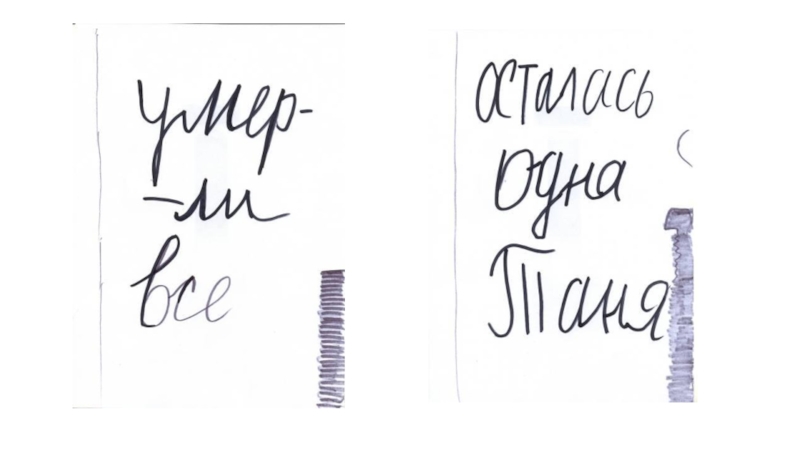 умер-
-ли
все
осталась
одна
Таня